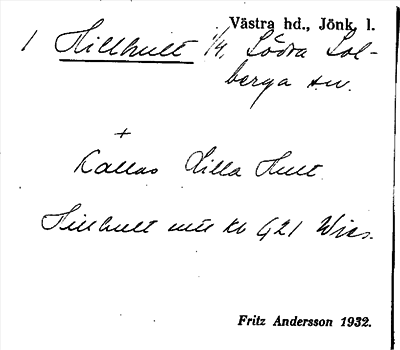 Västra hd., Jönk, l.
1 Hillhult 1/4, Södra Sol-
berga sn.
+
Kallas Lilla Hult
Hillhult mtl kb G21 Wies.
Fritz Andersson 1932.